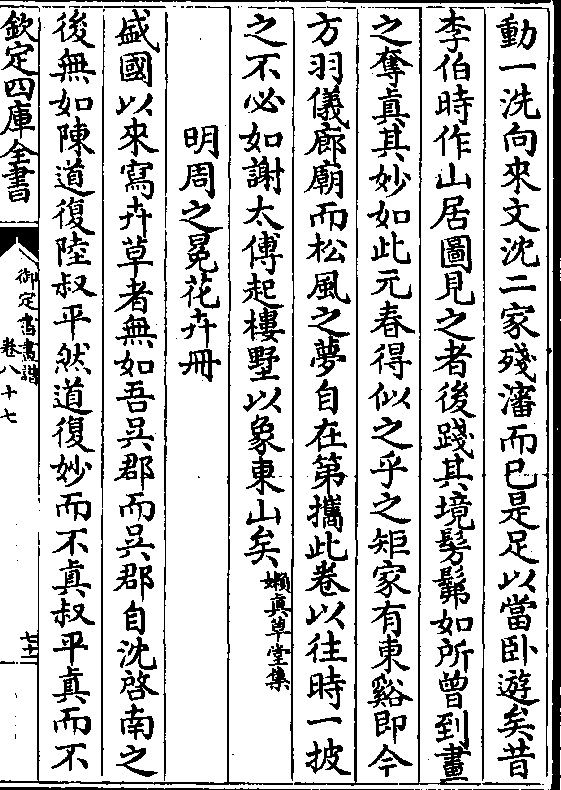 動一洗向來文沈二家殘瀋而已是足以當卧遊矣昔
李伯時作山居圖見之者後踐其境髣髴如所曾到畫
之奪真其妙如此元春得似之乎之矩家有東谿即今
方羽儀廊廟而松風之夢自在第攜此卷以往時一披
之不必如謝太傅起樓墅以象東山矣嬾真草堂集
明周之冕花卉冊
盛國以來寫卉草者無如吾吳郡而吳郡自沈啓南之
後無如陳道復陸叔平然道復妙而不真叔平真而不
欽定四庫全書
御定書畫譜
卷八十七
七十二